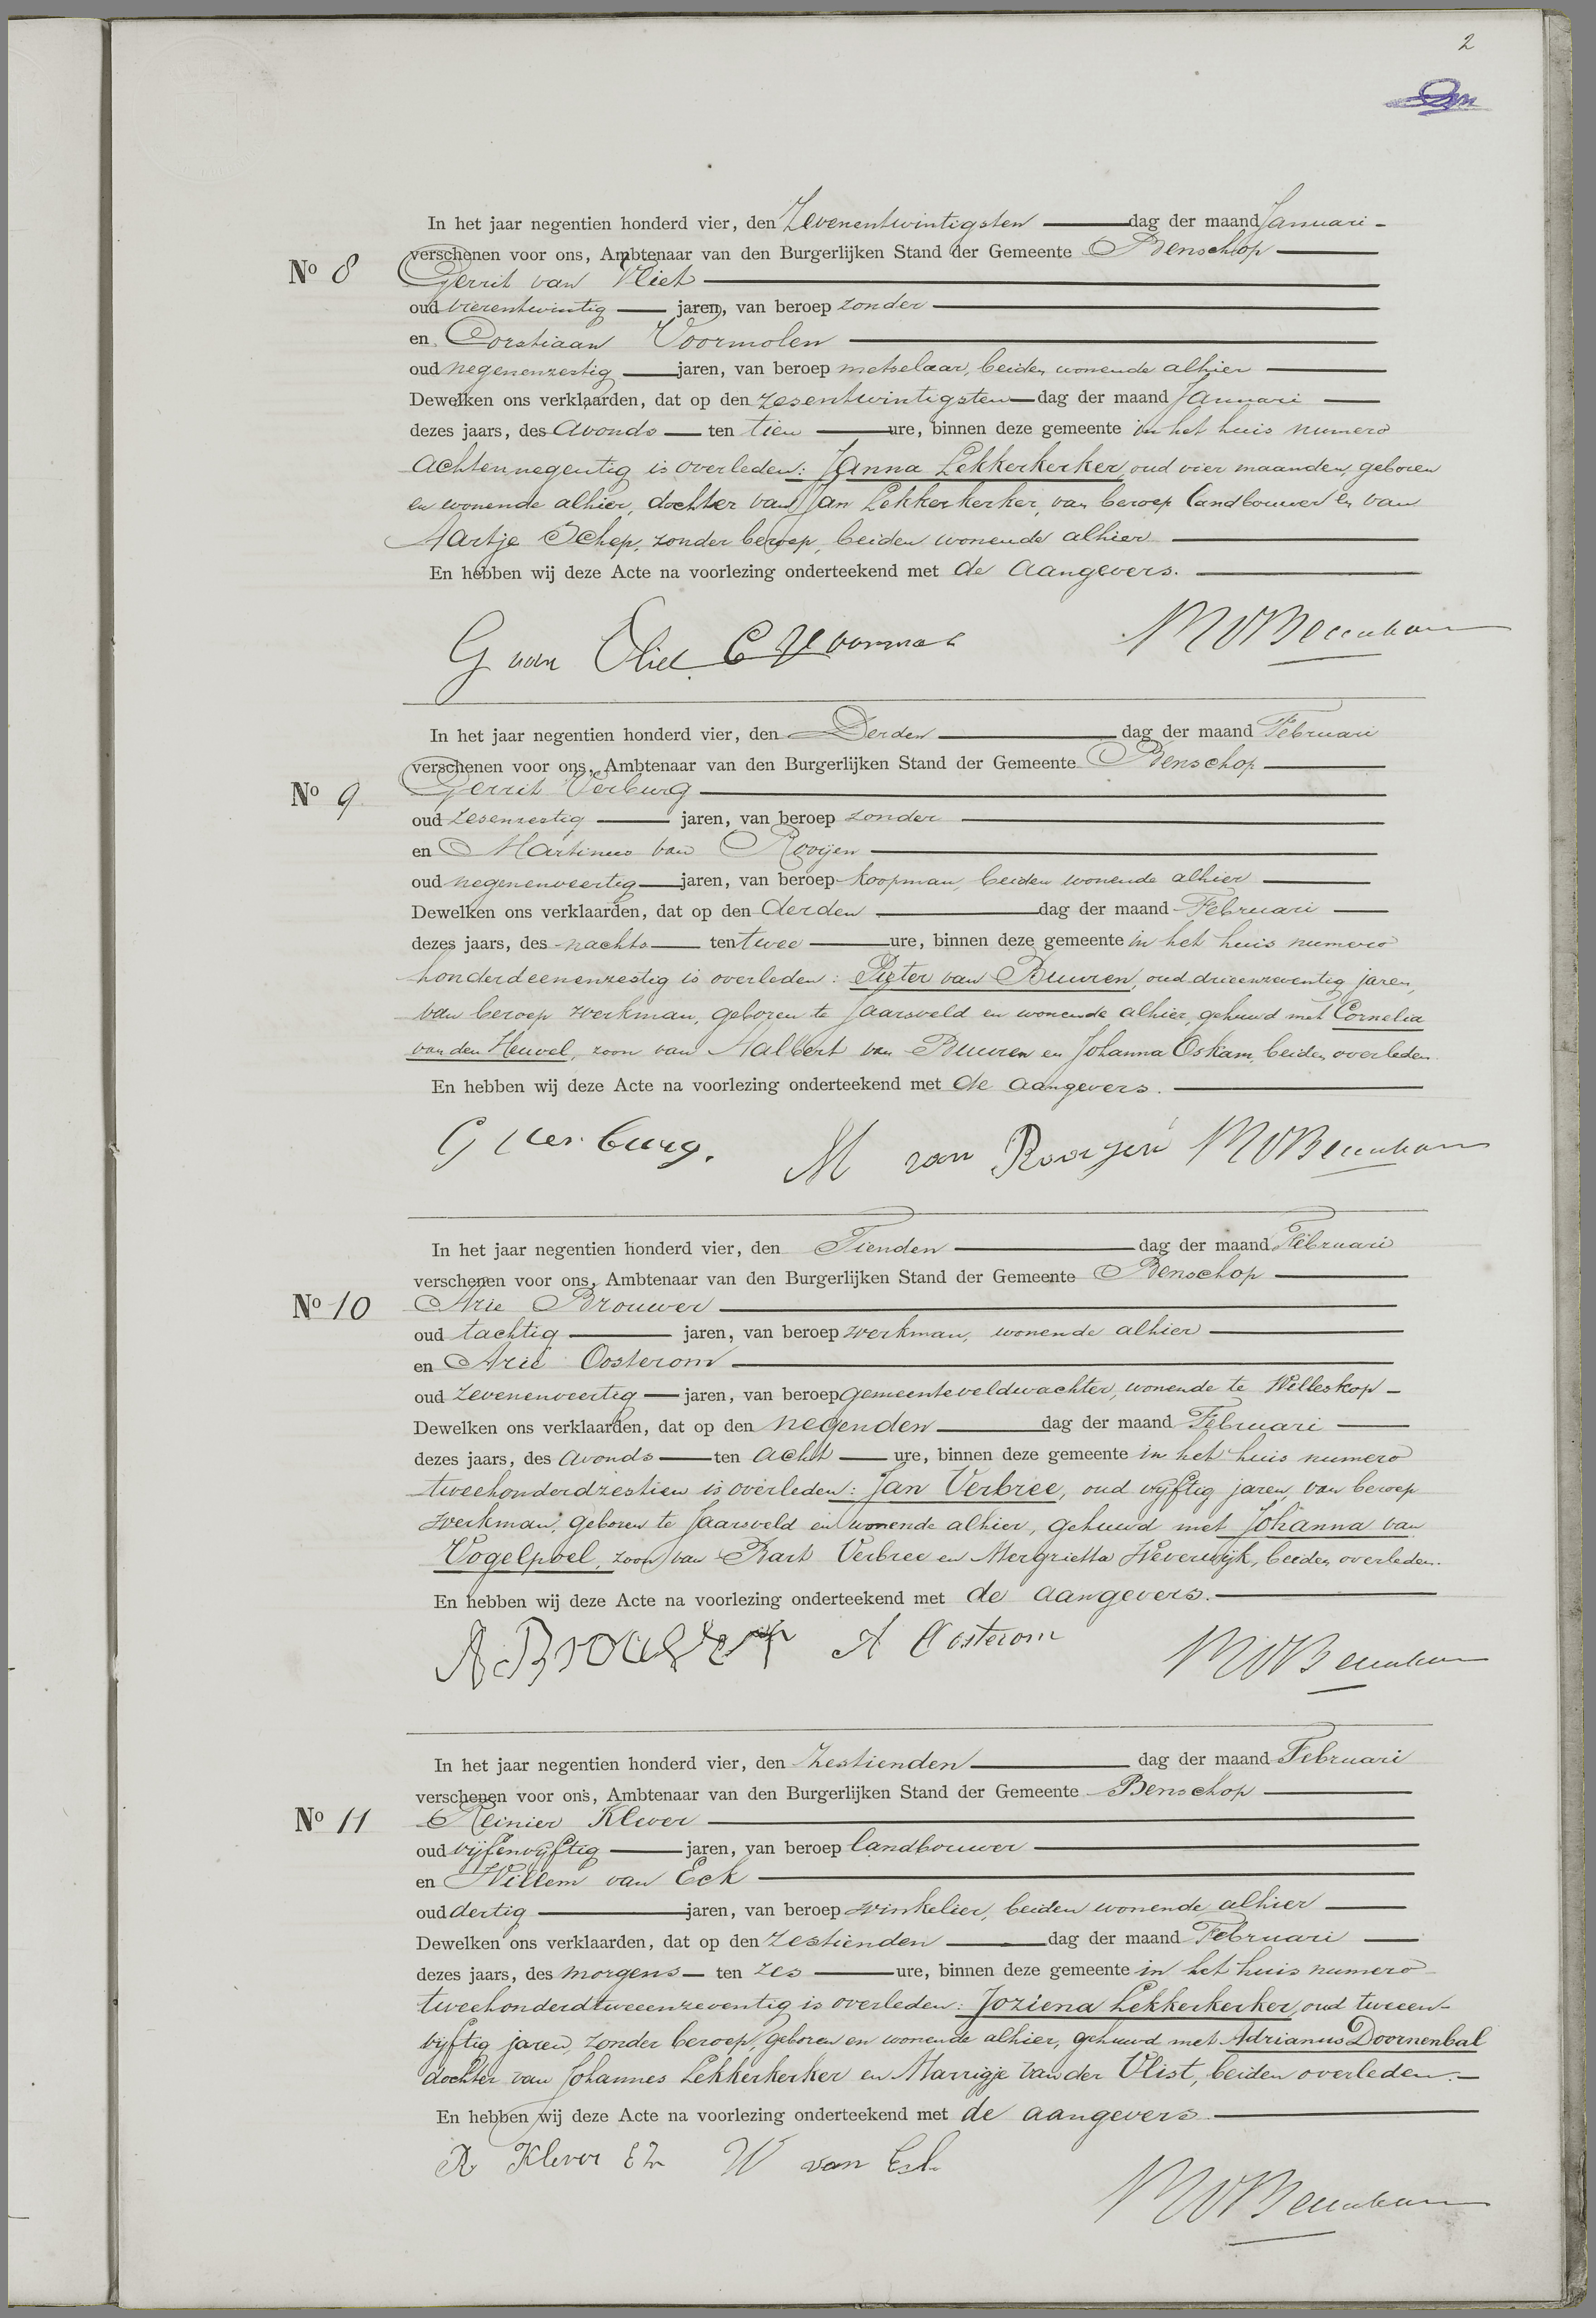 2
In het jaar negentien honderd vier, den Zevenentwintigsten dag der maand Januari
verschenen voor ons, Ambtenaar van den Burgerlijken Stand der Gemeente Benschop
No 8 Gerrit van Vliet
oud vierentwintig jaren, van beroep zonder
en Corstiaan Voormolen
oud negenenzestig jaren, van beroep metselaar, beiden wonende alhier
Dewelken ons verklaarden, dat op den zesentwintigsten dag der maand Januari
dezes jaars, des avonds ten tien ure, binnen deze gemeente in het huis numero
achtennegentig is overleden: Janna Lekkerkerker, oud vier maanden, geboren
en wonende alhier, dochter van Jan Lekkerkerker, van beroep landbouwer en van
Aartje Schep, zonder beroep, beiden wonende alhier
En hebben wij deze Acte na voorlezing onderteekend met de aangevers.
G van Vliet C Voormol
In het jaar negentien honderd vier, den Derden dag der maand Februari
verschenen voor ons, Ambtenaar van den Burgerlijken Stand der Gemeente Benschop
No 9 Gerrit Verburg
oud zesenzestig jaren, van beroep zonder
en Martinus van Rooijen
oud negenenveertig jaren, van beroep koopman, beiden wonende alhier
Dewelken ons verklaarden, dat op den derden dag der maand Februari
dezes jaars, des nachts ten twee ure, binnen deze gemeente in het huis numero
honderdeenenzestig is overleden: Pieter van Buuren, oud drieenzeventig jaren,
van beroep werkman, geboren te Jaarsveld en wonende alhier, gehuwd met Cornelia
van den Heuvel, zoon van Aalbert van Buuren en Johanna Oskam, beiden overleden
En hebben wij deze Acte na voorlezing onderteekend met de aangevers.
G Verburg. M van Rooijen
In het jaar negentien honderd vier, den Tienden dag der maand Februari
verschenen voor ons, Ambtenaar van den Burgerlijken Stand der Gemeente Benschop
No 10 Arie Brouwer
oud tachtig jaren, van beroep werkman, wonende alhier
en Arie Oosterom
oud zevenenveertig jaren, van beroep gemeenteveldwachter, wonende te Willeskop
Dewelken ons verklaarden, dat op den negenden dag der maand Februari
dezes jaars, des avonds ten acht ure, binnen deze gemeente in het huis numero
tweehonderdzestien is overleden: Jan Verbree, oud vijftig jaren, van beroep
werkman, geboren te Jaarsveld en wonende alhier, gehuwd met Johanna van
Vogelpoel, zoon van Bart Verbree en Mergrietta Weverwijk, beiden overleden.
En hebben wij deze Acte na voorlezing onderteekend met de aangevers.
A Brouwer A Oosterom
In het jaar negentien honderd vier, den Zestienden dag der maand Februari
verschenen voor ons, Ambtenaar van den Burgerlijken Stand der Gemeente Benschop
No 11 Reinier Klever
oud vijfenvijftig jaren, van beroep landbouwer
en Willem van Eck
oud dertig jaren, van beroep winkelier, beiden wonende alhier
Dewelken ons verklaarden, dat op den zestienden dag der maand Februari
dezes jaars, des morgens ten zes ure, binnen deze gemeente in het huis numero
tweehonderdtweeenzeventig is overleden: Joziena Lekkerkerker, oud tweeen-
vijftig jaren, zonder beroep, geboren en wonende alhier, gehuwd met Adrianus Doornenbal
dochter van Johannes Lekkerkerker en Marrigje van der Vlist, beiden overleden.
En hebben wij deze Acte na voorlezing onderteekend met de aangevers
R Klever EZn W van Eck